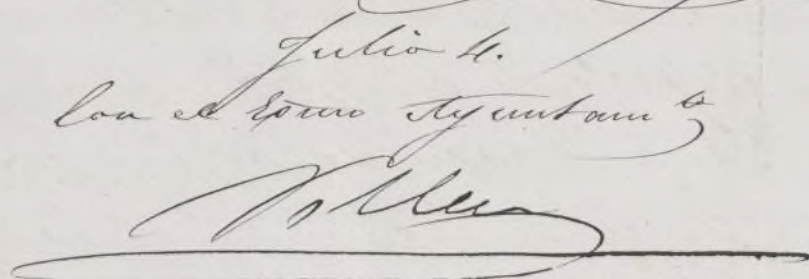 Julio 4.
Con el Exmo Ayuntamto